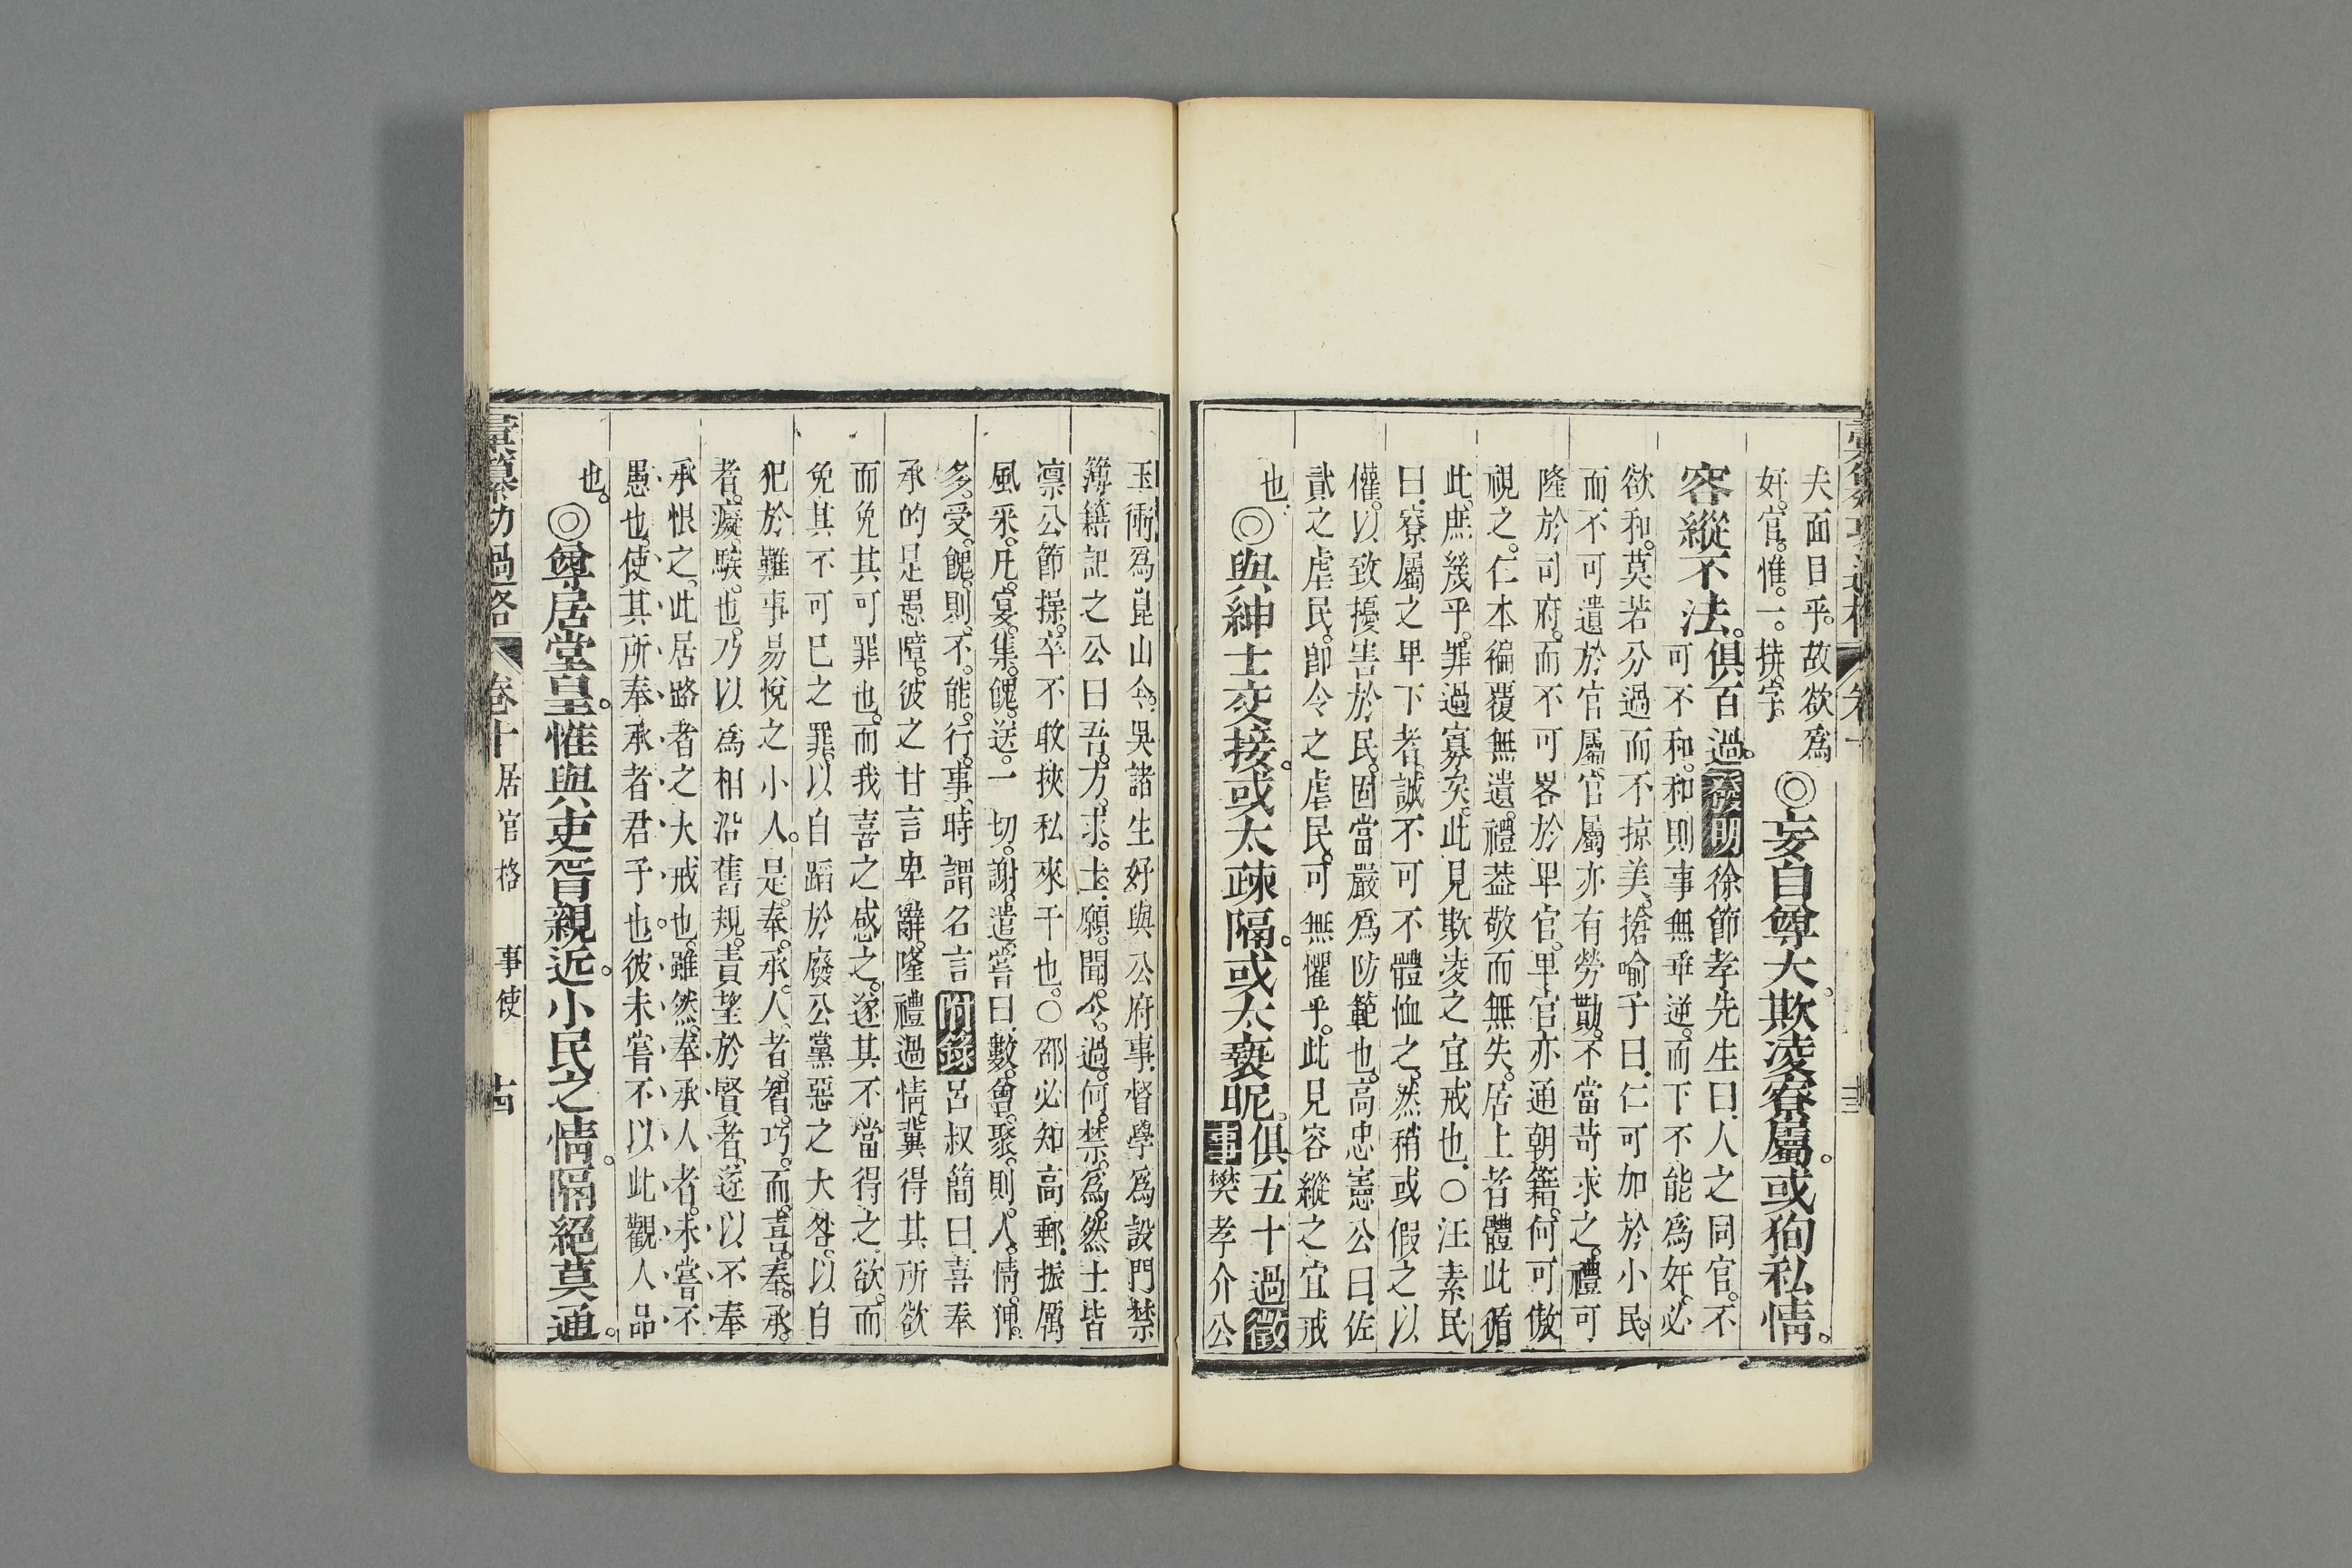 彙纂功過格 卷十
夫面目乎。故欲爲
奸。官。惟。一。拚。字。
◎妄自尊大。欺凌寮屬。或狥私情。
容縱不法。俱百過。發明徐節孝先生曰、人之同官。不
可不和。和則事無乖逆。而下不能爲奸。必
欲和。莫若分過而不掠美、搶喻子曰、仁可加於小民。
而不可遺於官屬。官屬亦有勞勩。不當苛求之。禮可
隆於司府。而不可畧於卑官。卑官亦通朝籍。何可傲
視之。仁本徧覆無遺。禮葢敬而無失。居上者體此循
此。庶幾乎。罪過寡矣。此見欺凌之宜戒也。○汪素民
曰、寮屬之卑下者、誠不可不體恤之。然稍或假之以
權。以致擾害於民。固當嚴爲防範也。高忠憲公曰、佐
貳之虐民。卽令之虐民。可無懼乎。此見容縱之宜戒
也、
◎與紳士交接。或太疎隔。或太褻昵。俱五十過徵
事樊孝介公
玉衝爲崑山令。吳諸生好與公府事。督學爲設門禁
簿籍記之公曰吾。方。求。士。願。聞。令。過。何。禁。爲。然士皆
凛公節操。卒不敢挾私來干也。○邵必知高郵、振厲
風采。凡。宴。集。餽。送。一切。謝。遣。嘗曰、數。會。聚。則。人。情。狎。
多。受。餽。則。不。能。行。事、時謂名言附錄呂叔簡曰、喜奉
承的是愚障。彼之甘言卑辭。隆禮過情、冀得其所欲
而免其可罪也。而我喜之感之。遂其不當得之欲。而
免其不可已之罪。以自蹈於廢公黨惡之大咎。以自
犯於難事易悅之小人。是。奉。承。人。者。智。巧。而。喜。奉。承。
者。癡。騃。也。乃以爲相沿舊規。責望於賢者、遂以不奉
承恨之。此居路者之大戒也。雖然。奉承人者。未嘗不
愚也。使其所奉承者君子也。彼未嘗不以此觀人品
也。
◎尊居堂皇。惟與吏胥親近。小民之情。隔絕莫通。
彙纂功過格 卷十 居官格 事使 十四